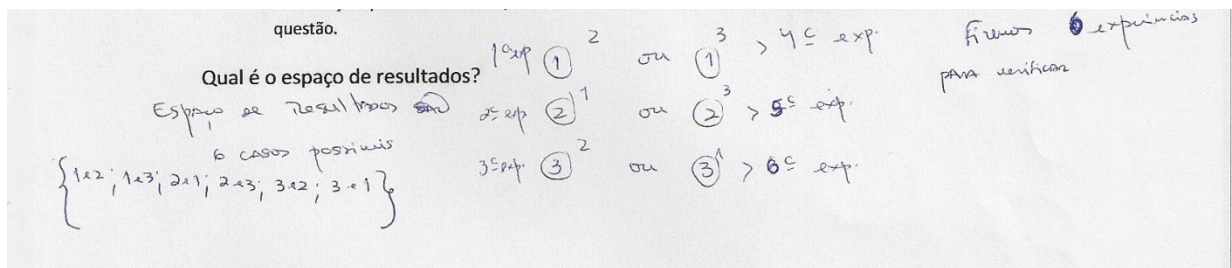 questão.
Qual é o espaço de resultados?
Espaço de Resultados são
6 casos possíveis
{1e2; 1e3; 2e1; 2e3; 3e2; 3e1}
1ª exp ① 2 ou ① 3 > 4ª exp.
2ª exp ② 1 ou ② 3 > 5ª exp.
3ª exp. ③ 2 ou ③ 1 > 6ª exp.
Fizemos 6 experiências
para verificar